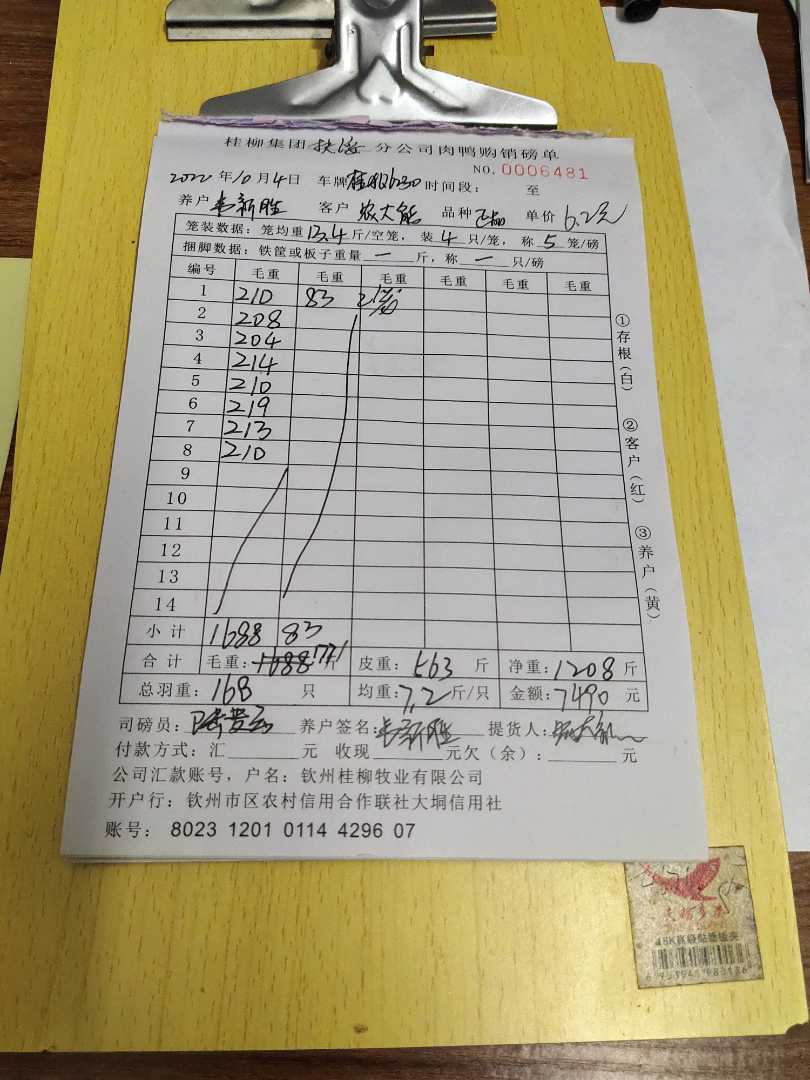 桂柳集团 扶海 分公司肉鸭购销磅单
NO.0006481
2022年10月4日 车牌 时间段: 至
养户 韦新胜 客户 农大能 品种 正品 单价 6.2元
笼装数据：笼均重13.4斤/空笼，装4只/笼，称5笼/磅
捆脚数据：铁筐或板子重量一斤，称一只/磅
编号 毛重 毛重 毛重 毛重 毛重 毛重
1 210 83 2笼
2 208
3 204
4 214
5 210
6 219
7 213
8 210
9
10
11
12
13
14
小计 1688 83
合计 毛重：1688 1771斤 皮重：563斤 净重：1208斤
总羽重：168只 均重：7.2斤/只 金额：7490元
司磅员： 养户签名：韦新胜 提货人：农大能
付款方式：汇 元 收现 元欠（余）： 元
公司汇款账号，户名：钦州桂柳牧业有限公司
开户行：钦州市区农村信用合作联社大垌信用社
账号： 8023 1201 0114 4296 07
①存根（白）
②客户（红）
③养户（黄）